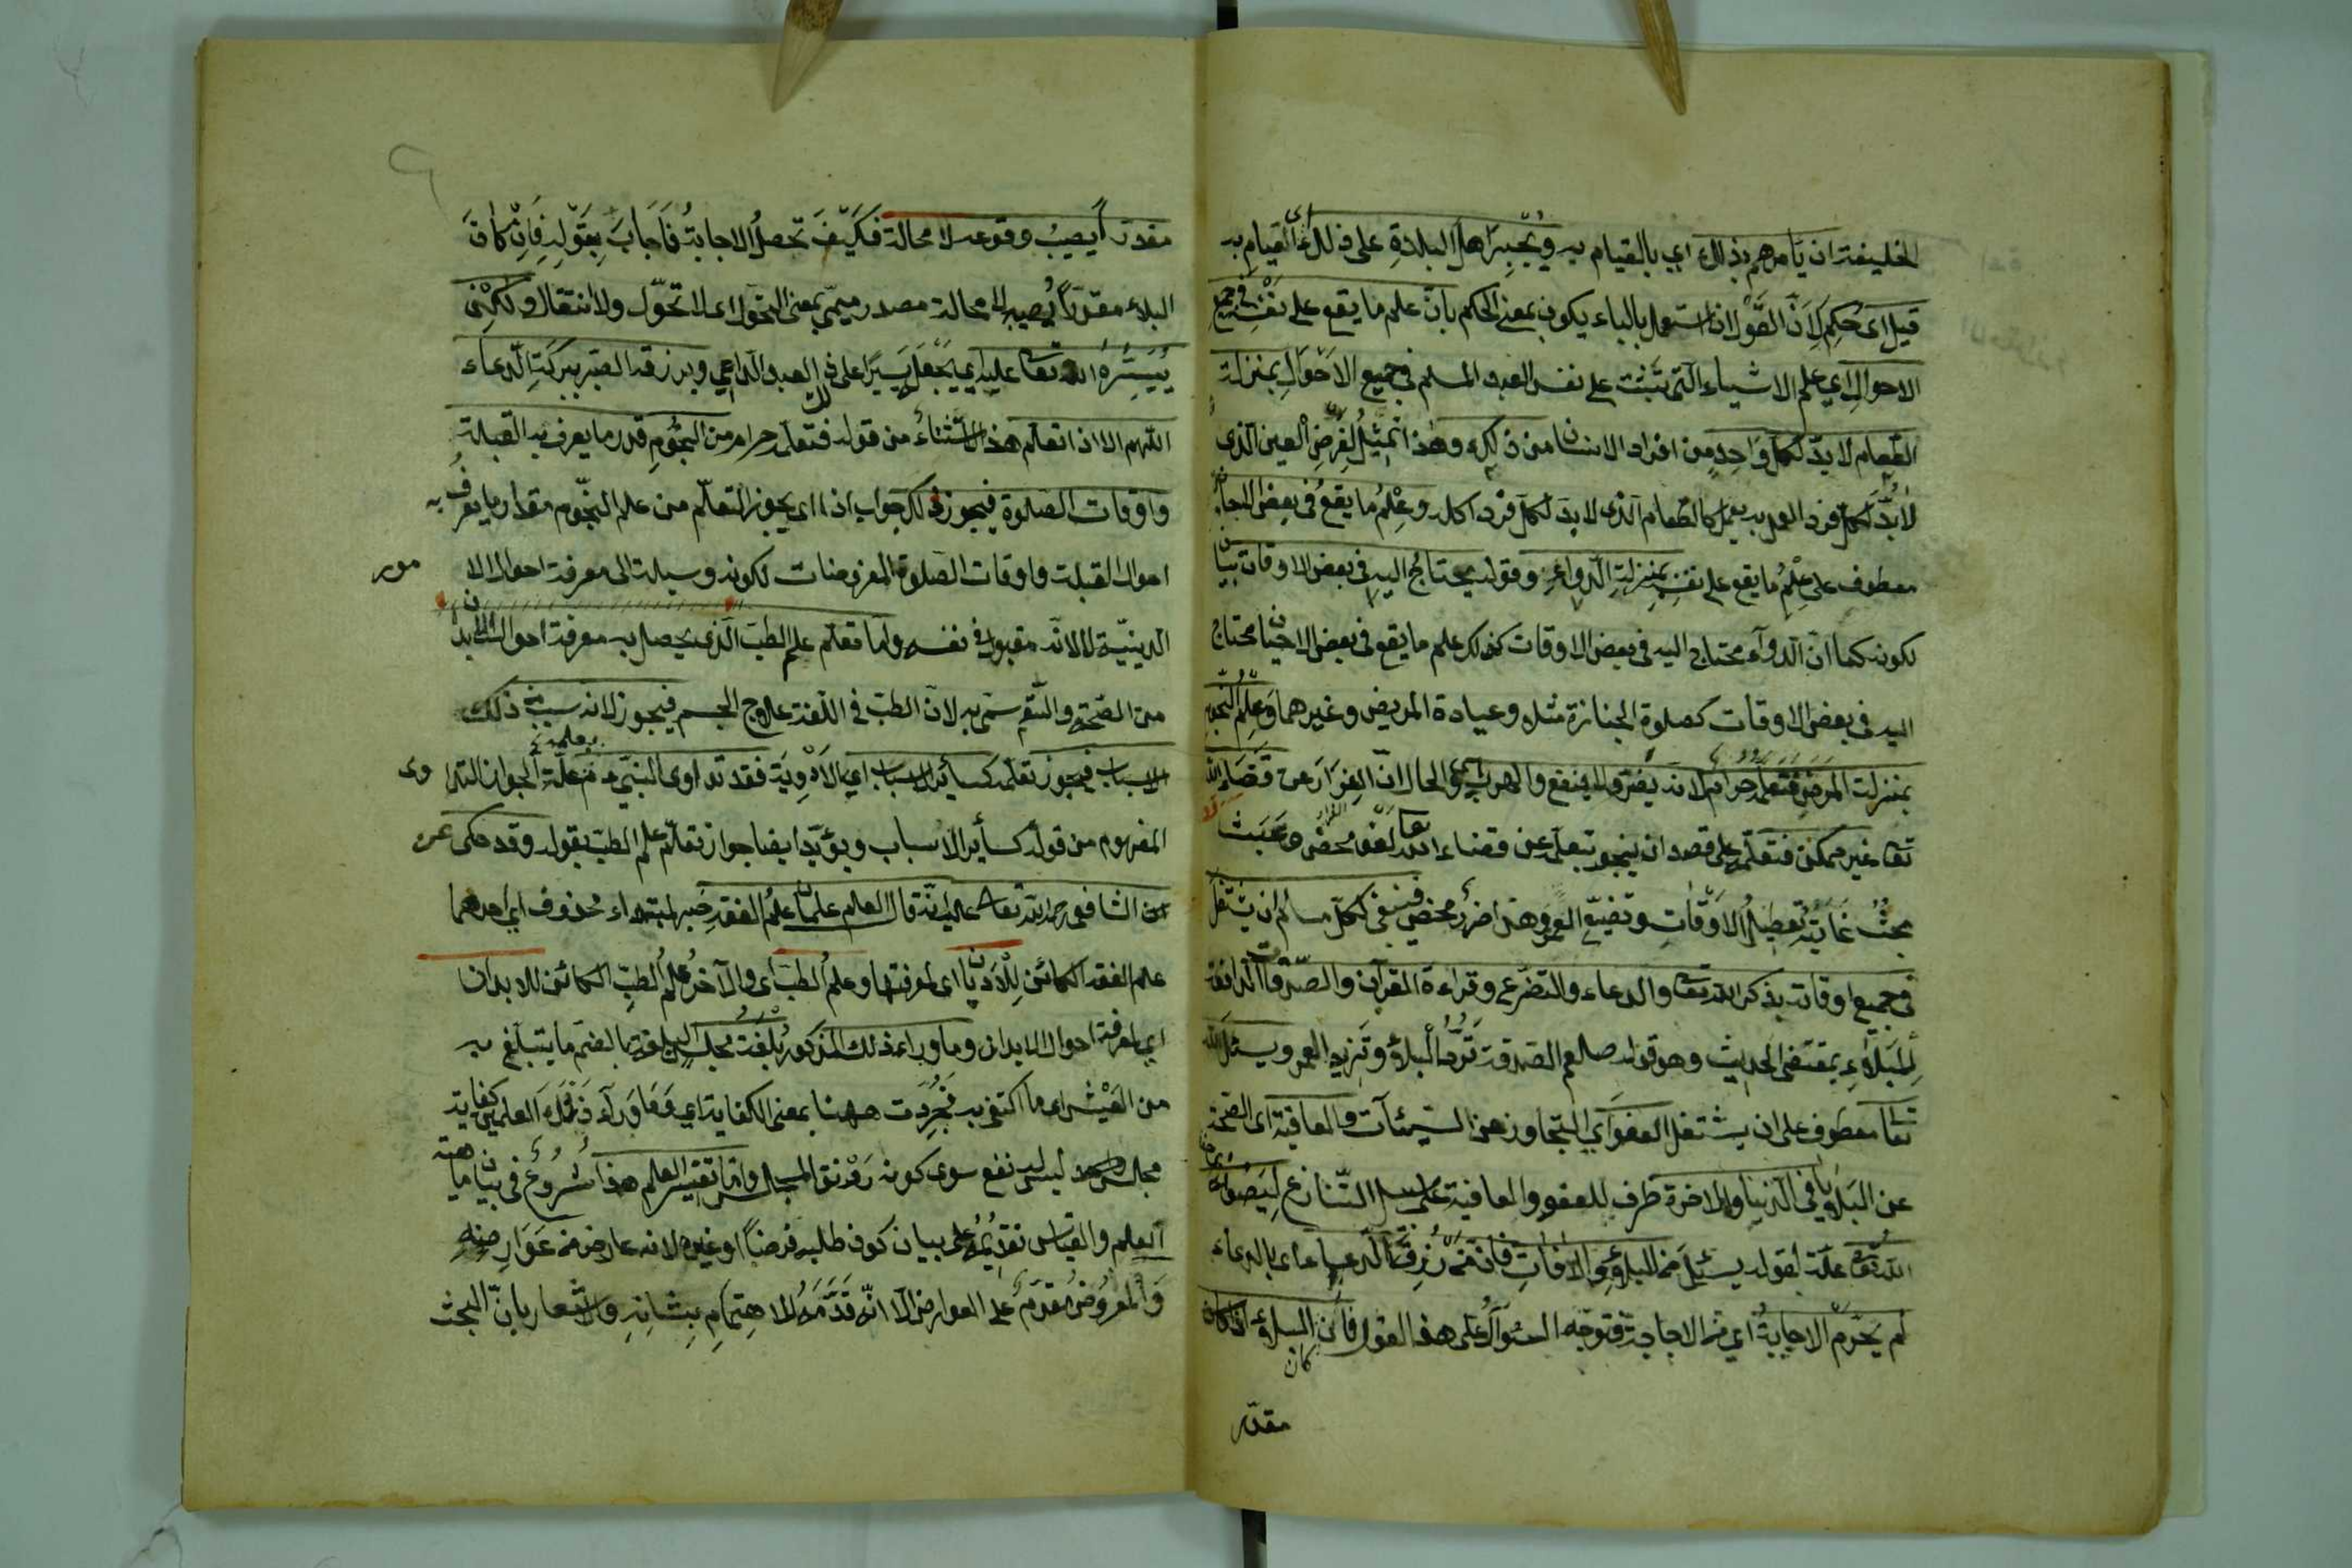 الخليفة ان يأمرهم بذلك اي بالقيام به ويُجْبِرَ اهل البلدةِ على ذلك اي القيام به
قيل اى حُكِمَ لِاَنَّ القَوْلَ اذا استعمل بالباء يكون بمعنى الحكم بانّ علم ما يقع على نَفْسِه في جميع
الاحوال اي علم الاشياء التي تثبت على نفس العبد المسلم في جميع الاَحْوَالِ بمنزلة
الطعام لا بدّ لكل وَاحِدٍ من افراد الانسان من ذلك وهذا تمثيلٌ لِفَرْضِ العين الذى
لاَبُدَّ لكل فرد العمل به كالطعام الذى لا بدّ لكل فرد اكله وعِلْمُ ما يقعُ في بعض الاحيان
معطوف على عِلْمُ ما يقع على نفسه بمنزلةِ الدواءِ وقوله يحتاج اليه في بعض الاوقات بيان
لكونه كما انّ الدوآء محتاج اليه في بعض الاوقات كذلك علم ما يقع في بعض الاحيان محتاج
اليه في بعض الاوقات كصلوة الجنازة مثلا وعيادة المريض وغيرهما وَعِلْمُ النجوم
بمنزلت المَرَضِ فتعلّمه حرامٌ لانه يضرّ ولا ينفع والهرب اي والحال انّ الفِرَارَ عن قَضَاءِ الله
تعا غير ممكن فتعلّمه على قصد ان ينجو بتعلّمه عن قضاء الله تعا لَغْو محض وعَبَث
بحتٌ غَايَتُه تعطيلُ الاَوْقَاتِ وتضييع العمر وهذا ضررٌ محض فينبغى لكلّ مسلم ان يشتغل
في جميع اوقاته بذكر الله تعا والدعاء والتضرّع وقراءة القرآن والصّدقات الدافعة
لِلْبَلَاءِ بمقتضى الحديث وهو قوله صلعم الصدقة تَرُدُّ البلاءَ وتَزِيد العمر ويسئلَ الله
تعا معطوف على ان يشتغل العفوَ اي التجاوز عن السيئآت والعافية اى الصحة
عن البَلَايا في الدنيا والاخرة ظرف للعفو والعافية على سبيل التنازع لِيَصُونَهُ
الله تعا علّة لقوله يسئل من البلاء والآفاتِ فان مَنْ رُزِقَ الدعاء اى بالدعاء
لم يحرم الاجابةَ اي من الاجابة فتوجّه السؤالُ على هذا القول فانّ البلاء ان كان
كان
مقدر
مقدراً يصيبُ وقوعه لا محالة فَكَيْفَ تحصلُ الاجابةُ فَاَجَابَ بِقَوْلِهِ فَاِنْ كانَ
البلاء مقدّراً يُصيبه لا محالة مصدر ميميّ بمعنى التحوّل اى لا تحوّل ولا انتقال ولكِنْ
يُيَسِّرُهُ الله تعا عليه اي يَجْعَلُ يسيرًا على ذلك العبد الداعي ويرزقه الصبر ببركةِ الدعاء
اللهم الا اذا تعلّم هذا استثناءٌ من قوله فتعلّمه حرام من النجُومِ قدر ما يعرف به القبلة
واوقات الصلوة فيجوز ذلك جواب اذا اى يجوز التعلّم من علم النجّوم مقدار ما يعرفُ به
احوال القبلة واوقات الصلوة المفروضات لكونه وسيلة الى معرفة احوال الامور
الدينيّة لا لانّه مقبول في نفسه وامّا تعلّم علم الطبّ الذى يحصل به معرفة احوال الابدان
من الصّحة والسّقم سمّى به لانّ الطبّ في اللّغة علاج الجسم فيجوز لانه سبب من ذلك
الاسباب فيجوز تعلّمه كسائر الاسباب اي الاَدْوِيَة فقد تداوى النبيّ علّة الجواز التداوى
المفهوم من قوله كسأير الاسباب ويؤيّد ايضا جواز تعلّم علم الطبّ بقوله وقد حكى عن
الشافعى رحمة الله تعا عليه انّه قال العلم علمان علمُ الفقه خبر لمبتداء محذوف اي احدهما
علم الفقه الكائن لِلْاَدْيَانِ اى لمعرفتها وعلمُ الطبّ اى والآخرُ علمُ الطبِّ الكائن للابدان
اي لمعرفة احوال الابدان وما ورآء ذلك المذكور بُلْغَةُ مجلس البلغة بالضّم ما يتبلّغ به
من العَيْش اى ما اكتفى به فجُرِّدت ههنا بمعنى الكفاية اي وَمَا وَرآءَ ذَيْنِكَ العلمين كفاية
مجلس ليس له نفع سوى كونه رَوْنَق المجلس وامّا تفسير العلم هذا شُرُوعٌ في بيان ماهيّة
العلم والقياس تقديمُه على بيان كون طلبه فرضًا او غيره لانه عارض من عَوَارِضِهِ
وَالْمعروضُ مُقَدَّمٌ على العوارض الّا انّه قَدَّمَهُ للاهتِمَامِ بِشانِهِ والاشعار بانّ البحث